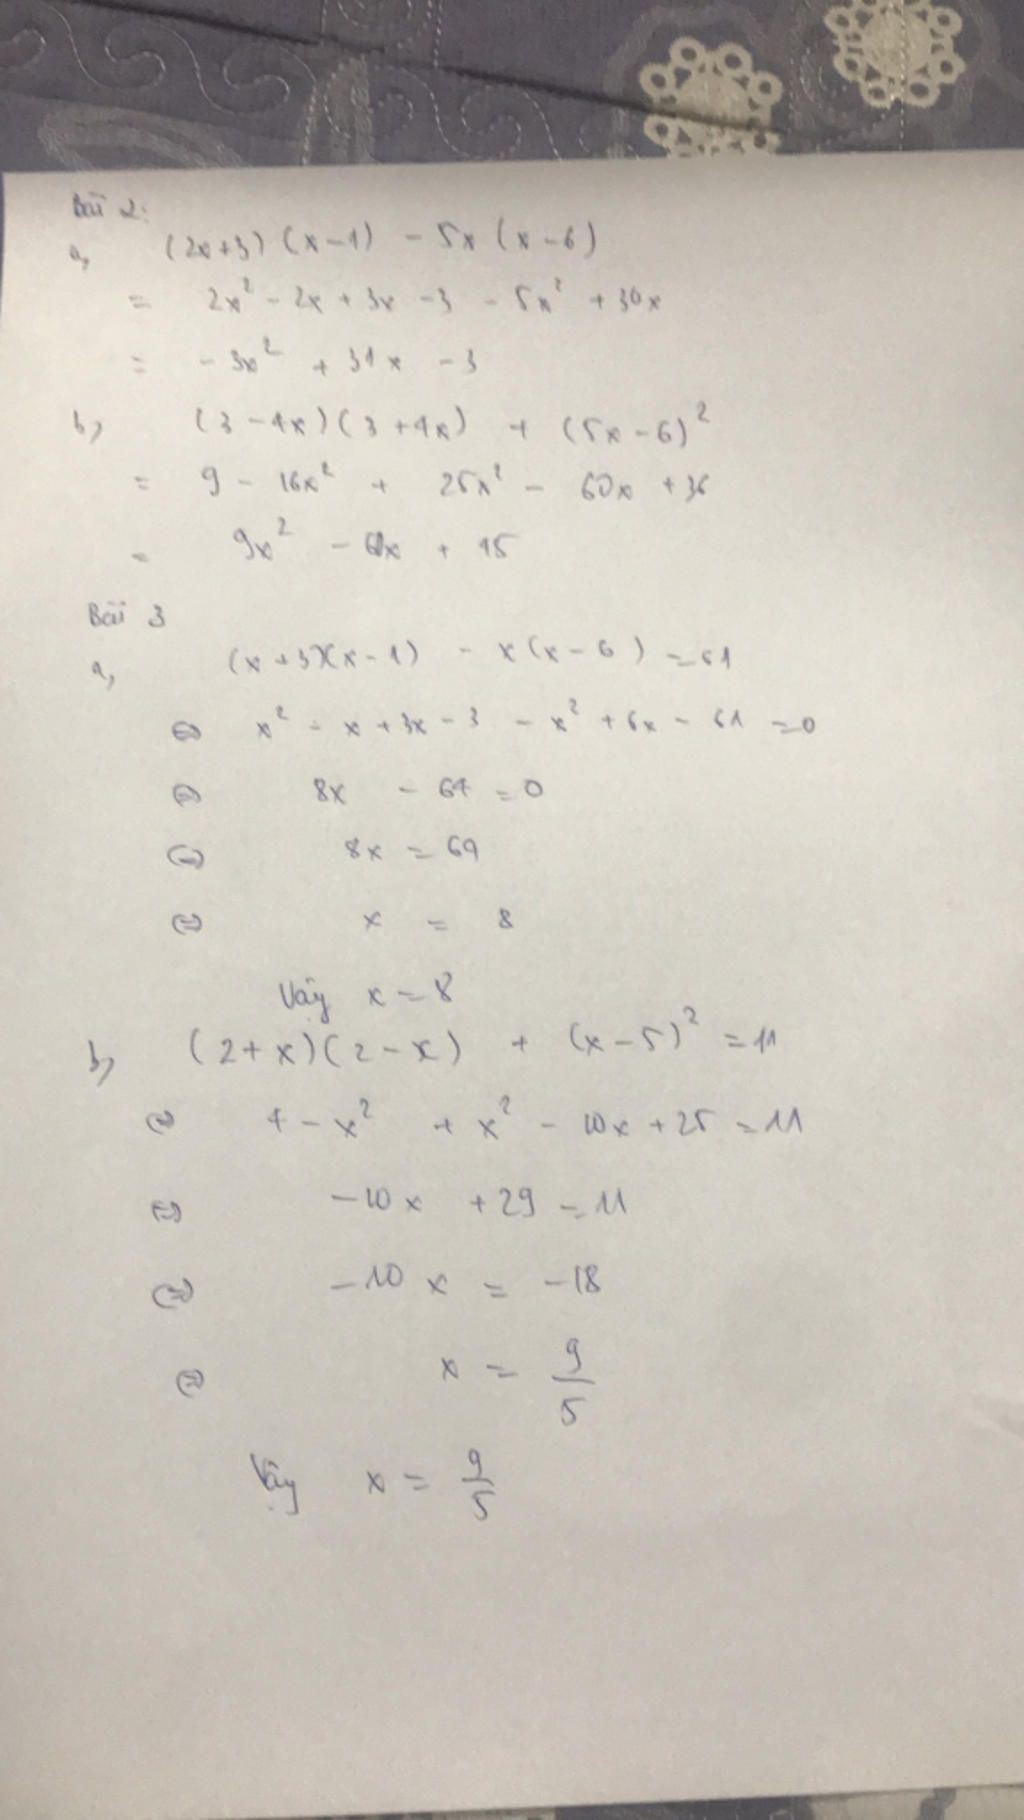 Bài 2:
a, (2x+3)(x-1) - 5x(x-6)
= 2x² - 2x + 3x - 3 - 5x² + 30x
= -3x² + 31x - 3
b, (3-4x)(3+4x) + (5x-6)²
= 9 - 16x² + 25x² - 60x + 36
= 9x² - 60x + 45
Bài 3
a, (x+3)(x-1) - x(x-6) = 61
⇔ x² - x + 3x - 3 - x² + 6x - 61 = 0
⇔ 8x - 64 = 0
⇔ 8x = 64
⇔ x = 8
Vậy x = 8
b, (2+x)(2-x) + (x-5)² = 11
⇔ 4 - x² + x² - 10x + 25 = 11
⇔ -10x + 29 = 11
⇔ -10x = -18
⇔ x = 9/5
Vậy x = 9/5